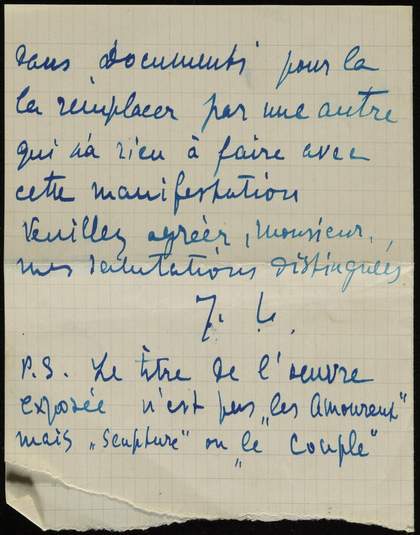 dans Documents pour la
la remplacer par une autre
qui n'a rien à faire avec
cette manifestation
Veuillez agréer, Monsieur,
mes salutations distinguées
J. L.
P.S. Le titre de l'oeuvre
exposée n'est pas „les Amoureux"
mais „Sculpture" ou „le Couple"